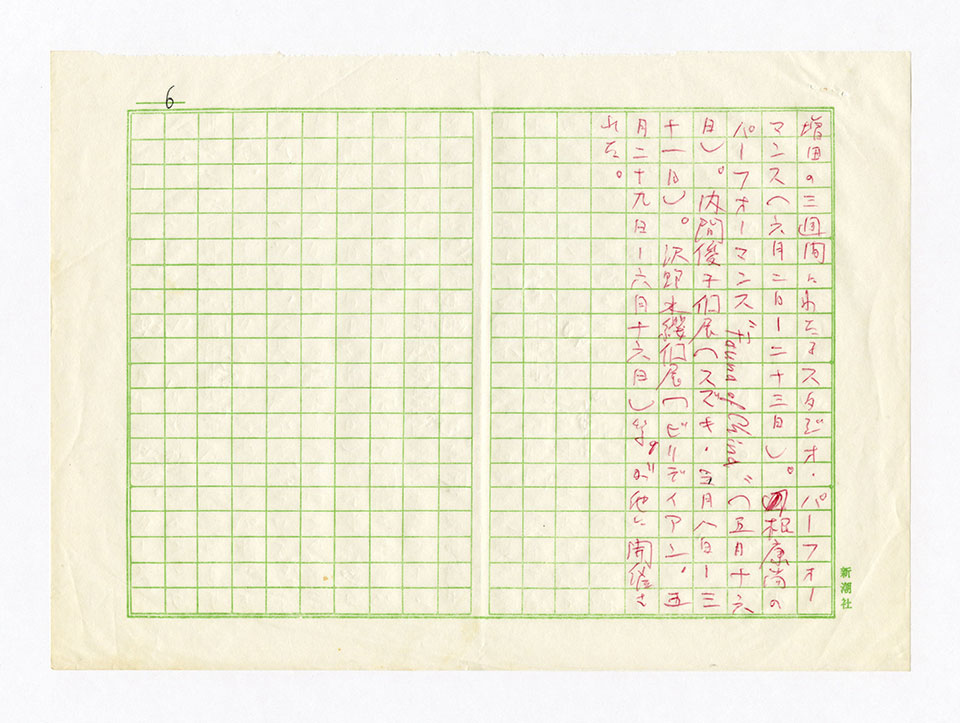 6
増田の三週間にわたるスタジオ・パーフォー
マンス(六月二日ー二十三日)。 根康尚の
パーフォーマンス〝Fauna of China〟(五月十六
日)。内間俊子個展(スズキ・当月八日ー三
十一日)。沢野水纓個展(ビリディアン、五
月二十九日ー六月十六日)等。が他に開催さ
れた。
新潮社